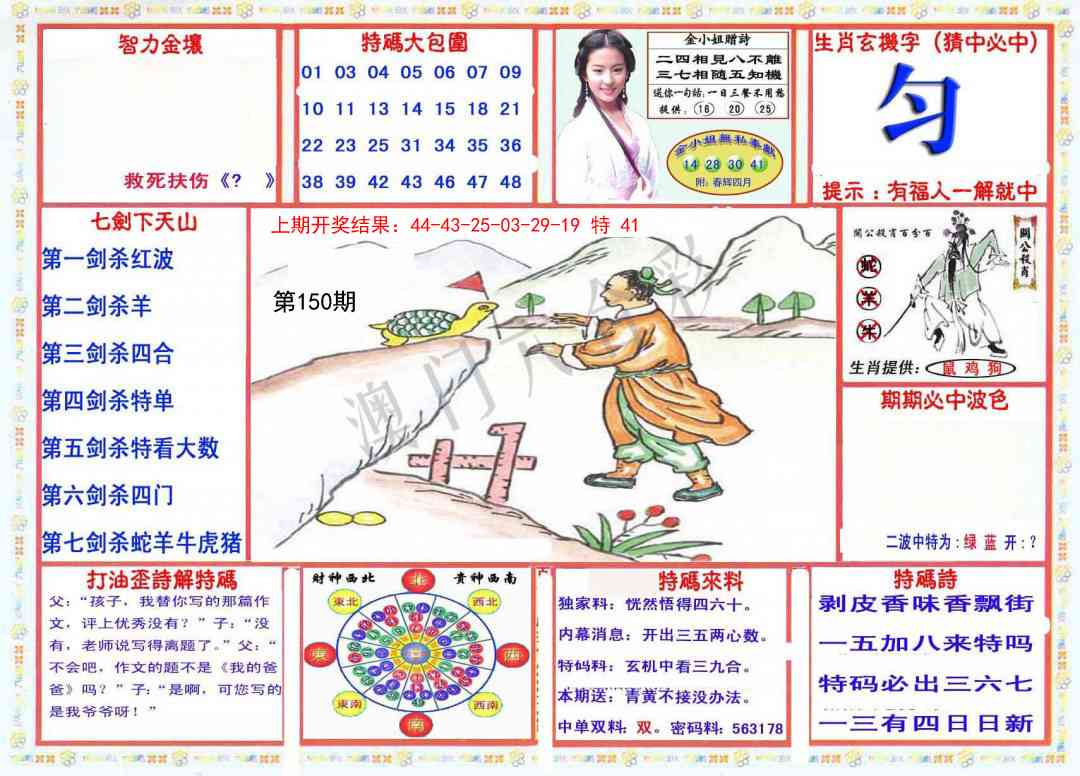 智力金壤
救死扶伤《? 》
特碼大包圍
01 03 04 05 06 07 09
10 11 13 14 15 18 21
22 23 25 31 34 35 36
38 39 42 43 46 47 48
金小姐赠詩
二四相見八不離
三七相随五知機
送你一句話:一日三餐不用愁
提供: 16 20 25
金小姐無私奉獻
14 28 30 41
附: 春辉四月
生肖玄機字(猜中必中)
匀
提示:有福人一解就中
七劍下天山
第一剑杀红波
第二剑杀羊
第三剑杀四合
第四剑杀特单
第五剑杀特看大数
第六剑杀四门
第七剑杀蛇羊牛虎猪
上期开奖结果: 44-43-25-03-29-19 特 41
第150期
澳门六合彩
關公殺肖百分百
關公殺肖
蛇
羊
牛
生肖提供: 鼠 鸡 狗
期期必中波色
二波中特为:绿 蓝 开:?
打油歪詩解特碼
父:“孩子,我替你写的那篇作
文,评上优秀没有?”子:“没
有,老师说写得离题了。”父:“
不会吧,作文的题不是《我的爸
爸》吗?”子:“是啊,可您写的
是我爷爷呀!”
財神西北
貴神西南
北
東北
西北
東
西
東南
西南
南
特碼來料
独家料: 恍然悟得四六十。
内幕消息: 开出三五两心数。
特码料: 玄机中看三九合。
本期送: 青黄不接没办法。
中单双料: 双。密码料: 563178
特碼詩
剥皮香味香飘街
一五加八来特吗
特码必出三六七
一三有四日日新